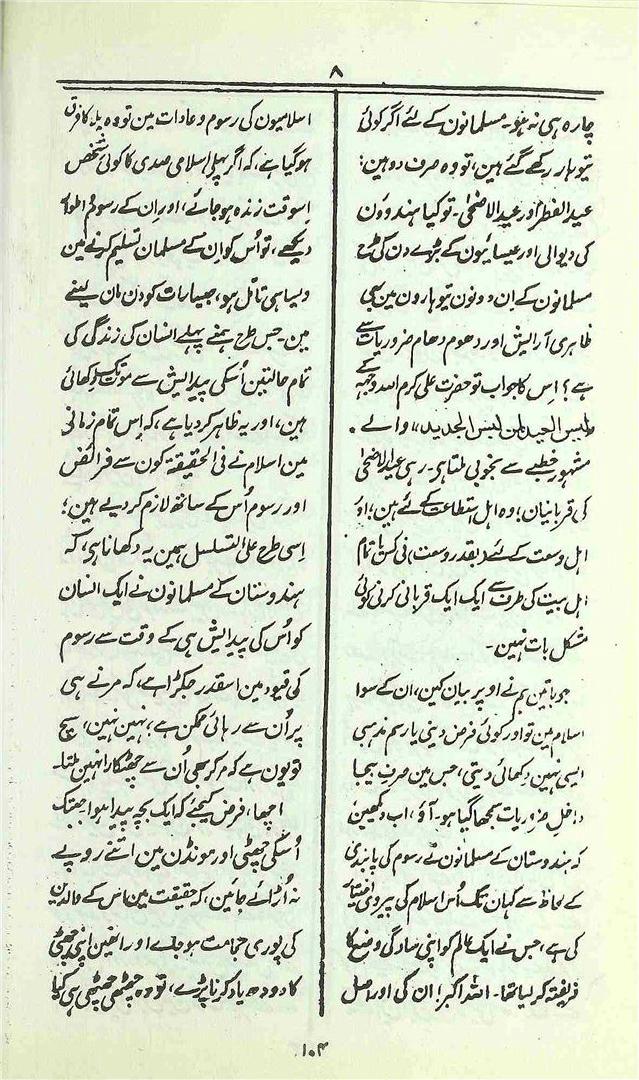 ۸
چارہ ہی نہ ہو۔ مسلمانون کے لئے اگر کوئی
تیوہار رکھے گئے ہین، تو وہ صرف دو ہین:
عید الفطر اور عید الاضحیٰ۔ تو کیا ہندوؤن
کی دیوالی اور عیسائیون کے بڑے دن کی طرح
مسلمانون کے ان دونون تیوہارون مین بھی
ظاہری آرایش اور دھوم دھام ضروریات سے
ہے؟ اِس کا جواب تو حضرت علی کرم اللہ وجہہ کے
"لیس العید لمن لبس الجدید" والے
مشہور خطبے سے بخوبی ملتا ہی۔ رہی عید الاضحیٰ
کی قربانیان؛ وہ اہل استطاعت کے لئے ہین؛ اور
اہل وسعت کے لئے (بقدر وسعت) فی کس یا تمام
اہل بیت کی طرف سے ایک ایک قربانی کرنی کوئی
مشکل بات نہین۔
جو باتین ہم نے اوپر بیان کین، ان کے سوا
اسلام مین تو اور کوئی فرض دینی یا رسم مذہبی
ایسی نہین دکھائی دیتی، جس مین صرفِ بیجا
داخلِ ضروریات سمجھا گیا ہو۔ آؤ، اب دیکھین
کہ ہندوستان کے مسلمانون نے رسوم کی پابندی
کے لحاظ سے کہان تک اُس اسلام کی پیروی اختیار
کی ہے، جس نے ایک عالم کو اپنی سادگی وضع کا
فریفتہ کر لیا تھا۔ اللہ اکبر! ان کی اور اصل
اسلامیون کی رسوم و عادات مین تو وہ بلا کا فرق
ہو گیا ہے، کہ اگر پہلی اسلامی صدی کا کوئی شخص
اِسوقت زندہ ہو جائے، اور اِن کے رسوم و اطوار
دیکھے، تو اُس کو اِن کے مسلمان تسلیم کرنے مین
ویسا ہی تامل ہو، جیسا رات کو دن مان لینے
مین۔ جس طرح ہمنے پہلے انسان کی زندگی کی
تمام حالتین اُسکی پیدایش سے موت تک دکھائی
ہین، اور یہ ظاہر کر دیا ہے، کہ اِس تمام زمانے
مین اسلام نے فی الحقیقۃ کون سے فرائض
اور رسوم اُس کے ساتھ لازم کر دیے ہین؛
اِسی طرح علی التسلسل ہمین یہ دکھانا ہی، کہ
ہندوستان کے مسلمانون نے ایک انسان
کو اُس کی پیدایش ہی کے وقت سے رسوم
کی قیود مین اسقدر جکڑا ہے، کہ مرنے ہی
پر اُن سے رہائی ممکن ہے؛ نہین نہین، سچ
تو یون ہے کہ مر کر بھی اُن سے چھٹکارا نہین ملتا۔
اچھا، فرض کیجئے کہ ایک بچہ پیدا ہوا۔ جبتک
اُسکی چھٹی اور مونڈن مین اتنے روپے
نہ اُڑائے جائین، کہ حقیقت مین اس کے والدین
کی پوری حجامت ہو جاے اور انھین اپنی چھٹی
کا دودھ یاد کرنا پڑے، تو وہ چھٹی چھٹی ہی کیا
۱۰۳